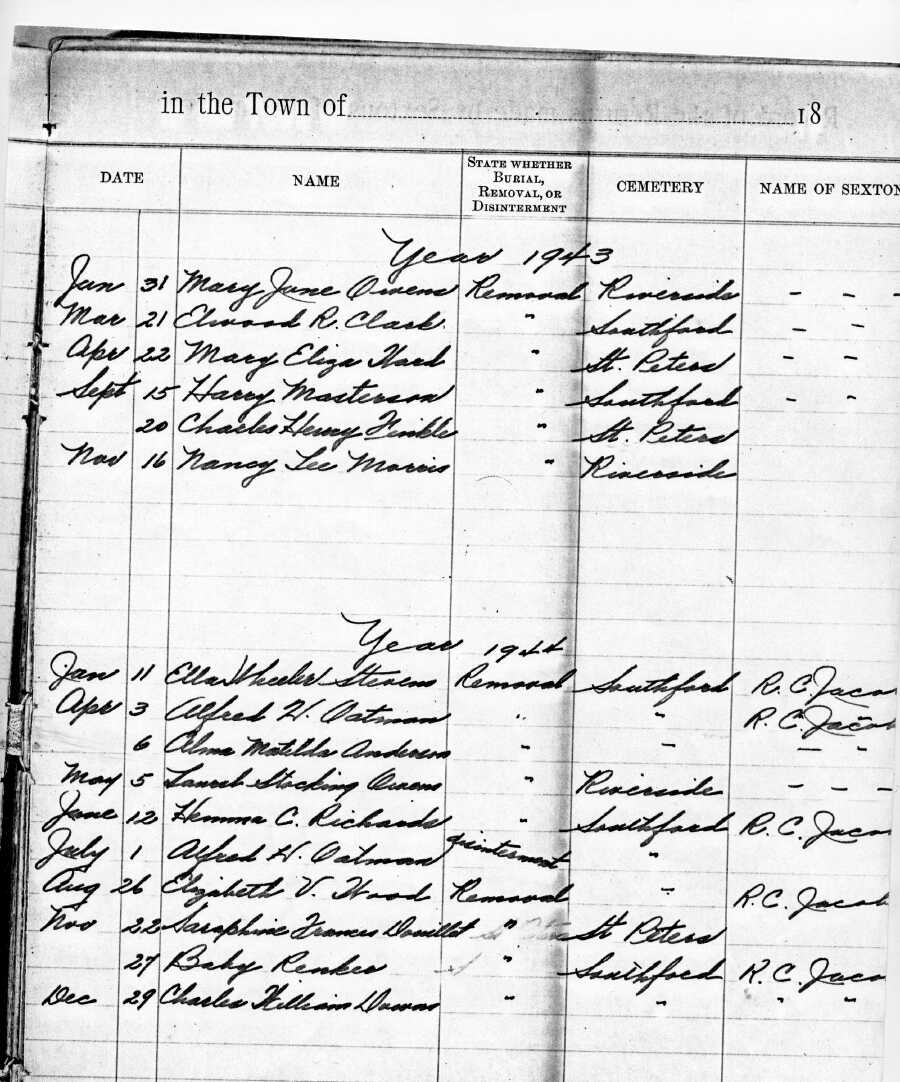 in the Town of 18
DATE NAME STATE WHETHER BURIAL, REMOVAL, OR DISINTERMENT CEMETERY NAME OF SEXTON
Year 1943
Jan 31 Mary Jane Owens Removal Riverside - - -
Mar 21 Elwood R. Clark. " Southford - -
Apr 22 Mary Eliza Hard " St. Peters - -
Sept 15 Harry Masterson " Southford - -
20 Charles Henry Hinkle " St. Peters
Nov 16 Nancy Lee Morris " Riverside
Year 1944
Jan 11 Ella Wheeler Stevens Removal Southford R. C. Jaco
Apr 3 Alfred H. Oatman " " R. C. Jacob
6 Alma Matilda Anderson " - - -
May 5 Laurel Stocking Owens " Riverside - - -
June 12 Hemma C. Richards " Southford R. C. Jaco
July 1 Alfred H. Oatman "
Aug 26 Elizabeth V. Wood Removal " R.C. Jacob
Nov 22 Saraphine Frances Douillet " St Peters
27 Baby Renker " Southford R. C. Jaco
Dec 29 Charles William Downs " " " "